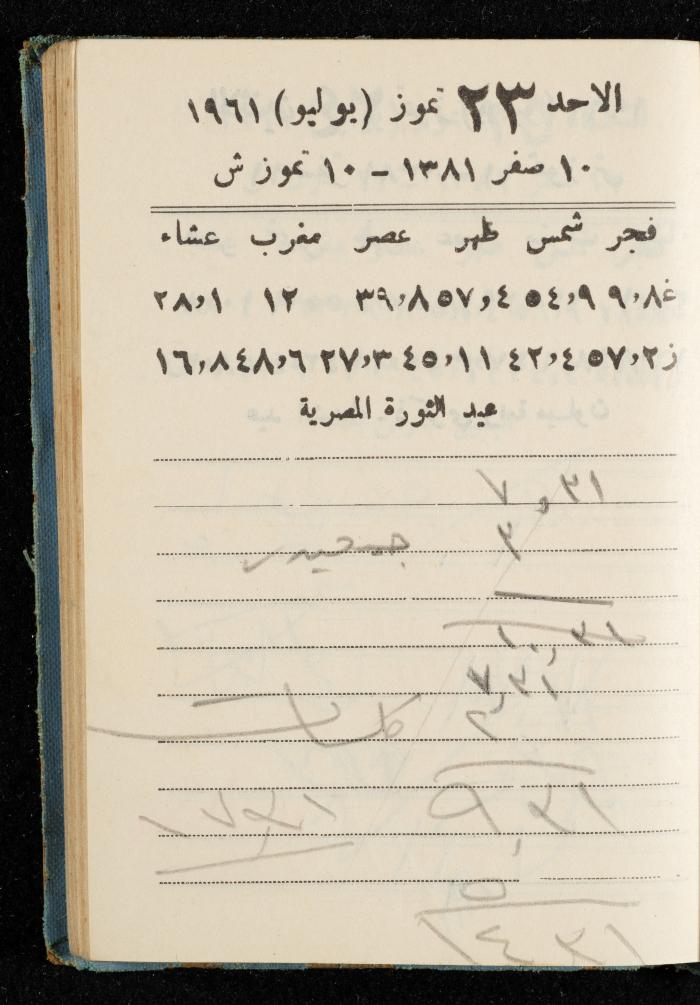 الاحد ٢٣ تموز (يوليو) ١٩٦١
١٠ صفر ١٣٨١ - ١٠ تموز ش
فجر شمس ظهر عصر مغرب عشاء
غ ٨,٩ ٩,٥٤ ٤,٥٧ ٨,٣٩ ١٢ ١,٢٨
ز ٢,٥٧ ٤,٤٢ ١١,٤٥ ٣,٢٧ ٦,٤٨ ٨,١٦
عيد الثورة المصرية
٧,٣١
٣
١٠,٣١
٧,٣١
٢
٩,٣١